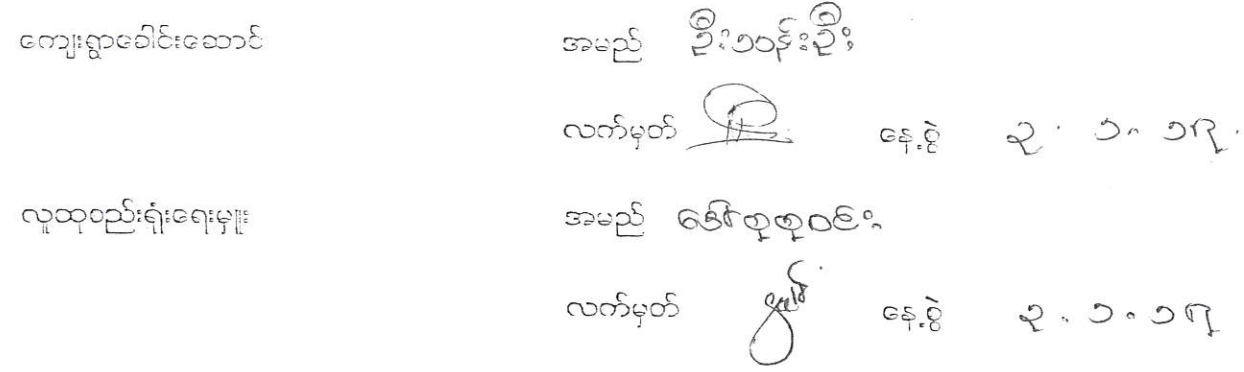 ကျေးရွာခေါင်းဆောင် အမည် ဦးသန်းဦး
လက်မှတ် နေ့စွဲ ၃.၁.၁၇.
လူထုစည်းရုံးရေးမှူး အမည် ဒေါ်စုစုဝင်း
လက်မှတ် နေ့စွဲ ၃.၁.၁၇